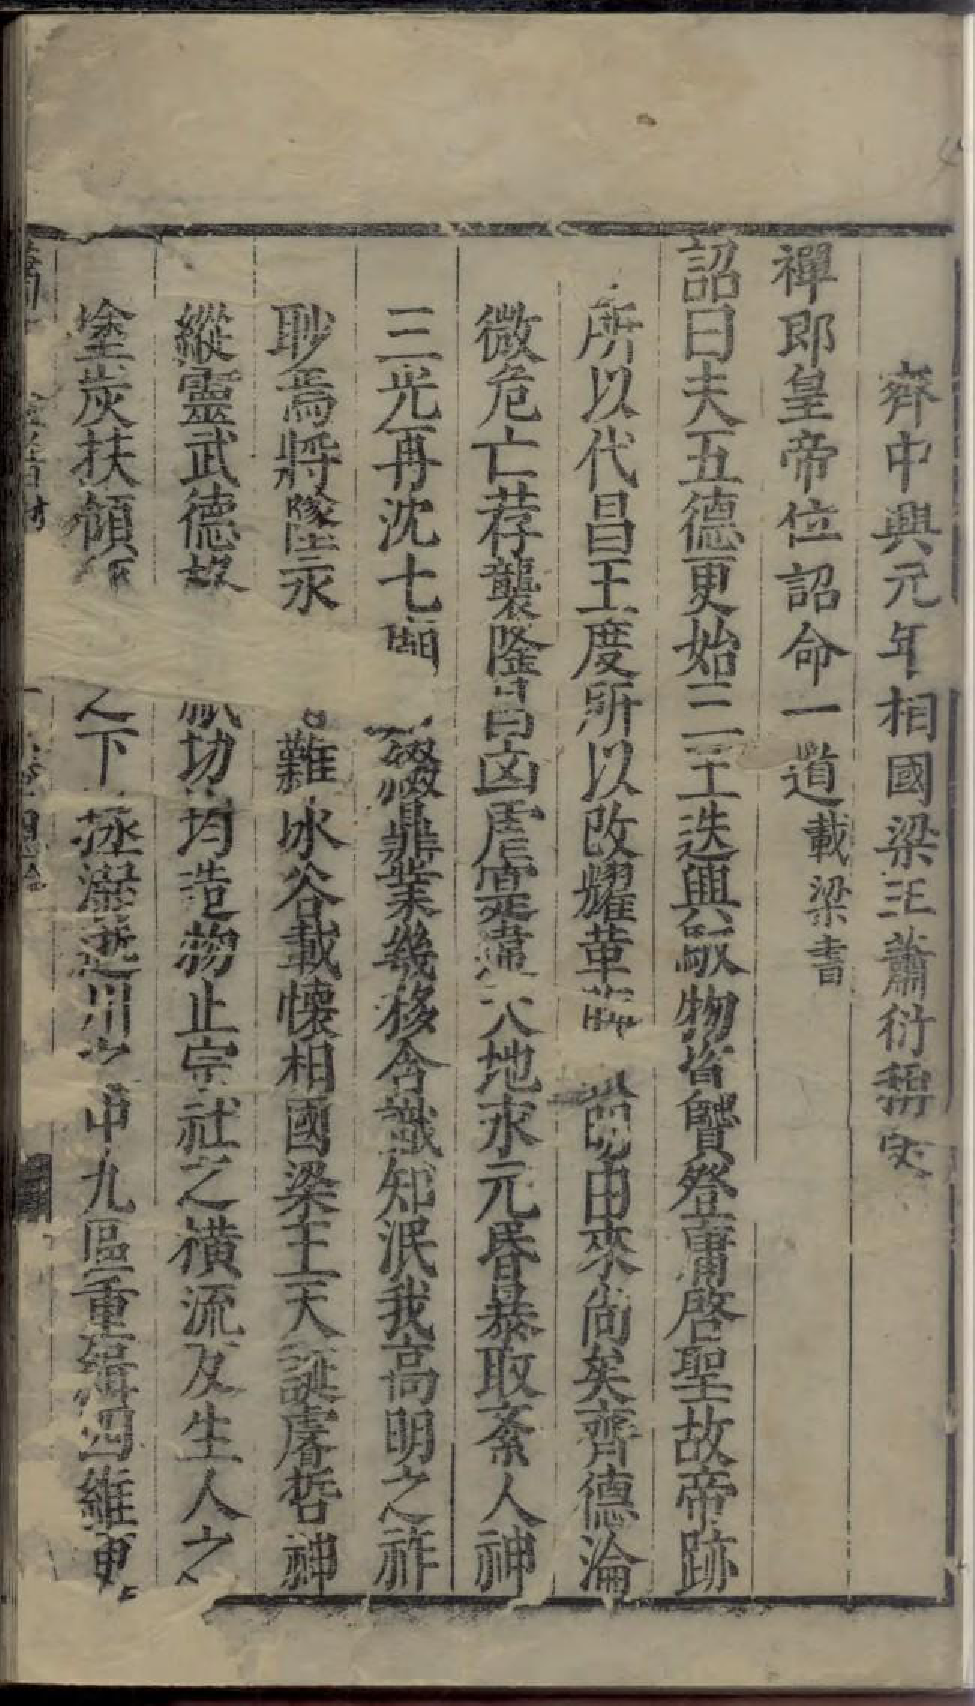 齊中興元年相國梁王蕭衍稱受
禪即皇帝位詔命一道載梁書
詔曰夫五德更始三王迭興馭物資賢登庸啓聖故帝跡
所以代昌王度所以改耀革晦 明由來尚矣齊德淪
微危亡荐襲隆昌凶虐寔違天地永元昏暴取紊人神
三光再沈七廟 綴鼎業幾移含識知泯我高明之祚
眇焉將墜永 難冰谷載懷相國梁王天誕睿哲神
縱靈武德格 祇功均造物止宗社之橫流反生人之
塗炭扶傾 之下拯溺逝川之中九區重緝四維更